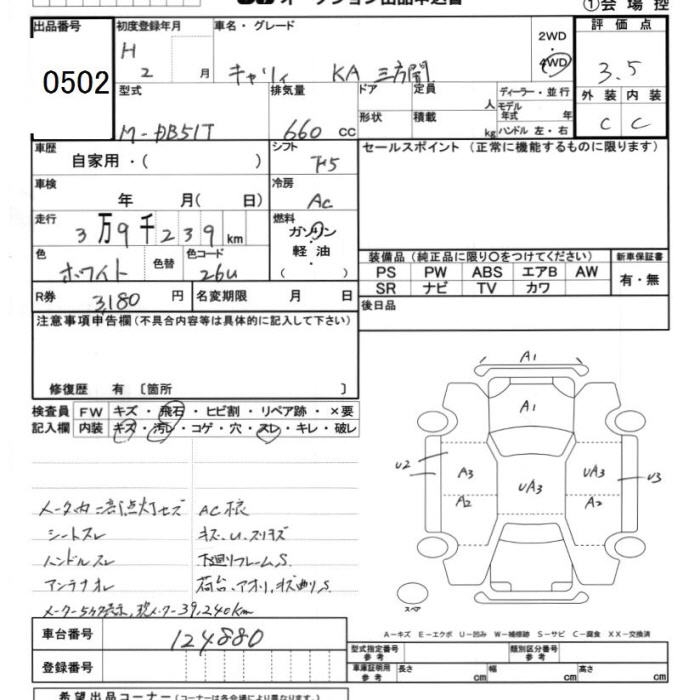 ①会場控
出品番号 初度登録年月 車名・グレード 2WD 4WD 評価点
0502 H 2 月 キャリィ KA 三方開 3.5
型式 排気量 ドア 定員 人 ディーラー・並行 外装 内装
形状 積載 kg モデル年式 年 ハンドル 左・右
M-DB51T 660 cc C C
車歴 シフト セールスポイント (正常に機能するものに限ります)
自家用・( ) F5
車検 冷房
年 月( 日) AC
走行 燃料
3万9千239km ガソリン
軽油
( )
色 色替 色コード
ホワイト 26U
装備品 (純正品に限り○をつけてください) 新車保証書
PS PW ABS エアB AW 有・無
SR ナビ TV カワ
R券 3,180 円 名変期限 月 日
後日品
注意事項申告欄 (不具合内容等は具体的に記入して下さい)
修復歴 有 〔箇所 〕
検査員 FW キズ・飛石・ヒビ割・リペア跡・×要
記入欄 内装 キズ・汚レ・コゲ・穴・スレ・キレ・破レ
A1
A1
U2 A3 UA3 UA3 U3
A2 A2
スペア
メータ内 AC
シートスレ キズ、U、スリキズ
ハンドルスレ 下廻りフレームS.
アンテナオレ 荷台、アオリ、キズ曲リS
39,240km
A-キズ E-エクボ U-凹み W-補修跡 S-サビ C-腐食 XX-交換済
車台番号 124880
型式指定番号 参考 類別区分番号 参考
登録番号
車庫証明用 参考 長さ cm 幅 cm 高さ cm
希望出品コーナー (コーナーは各会場により異なります。)